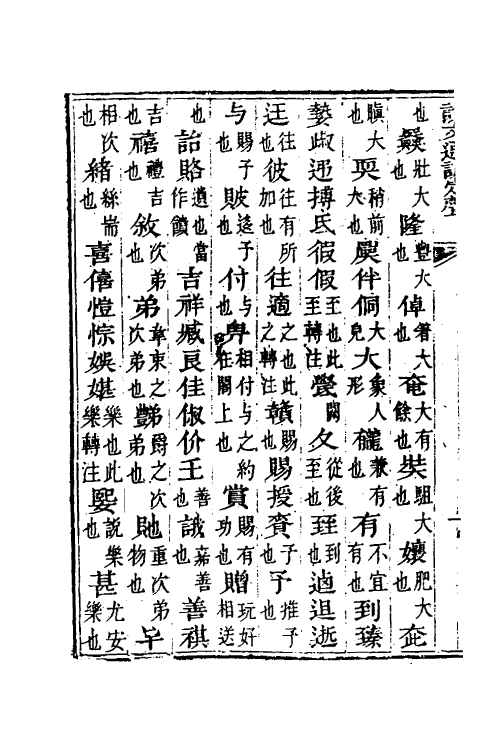 說文通訓定聲
也奰壯大也隆豐大也倬箸大也奄大有餘也奘駔大也孃肥大也
瞋大也耎稍前大也俁伴侗大皃大象人形龓兼有也有不宜有也到臻
摯搏氐徦假至也此至轉注鬩夂從後至也臸到也逝
迋往也彼往有所加也往適之也此之轉注贛賜也賜授賚予也予推予也
与賜予也貱迻予也付与也畁相付与之約在閣上也賞賜有功也贈玩好相送
也詒賂遺也當作饋吉祥臧良佳俶价王善也誐嘉善也善祺
吉也禧禮吉也敘次弟也弟韋束之次弟也豑爵之次弟也貤重次弟物也
相次也緒絲耑也喜僖愷悰娛媅樂也此樂轉注媐說樂也甚尤安樂也